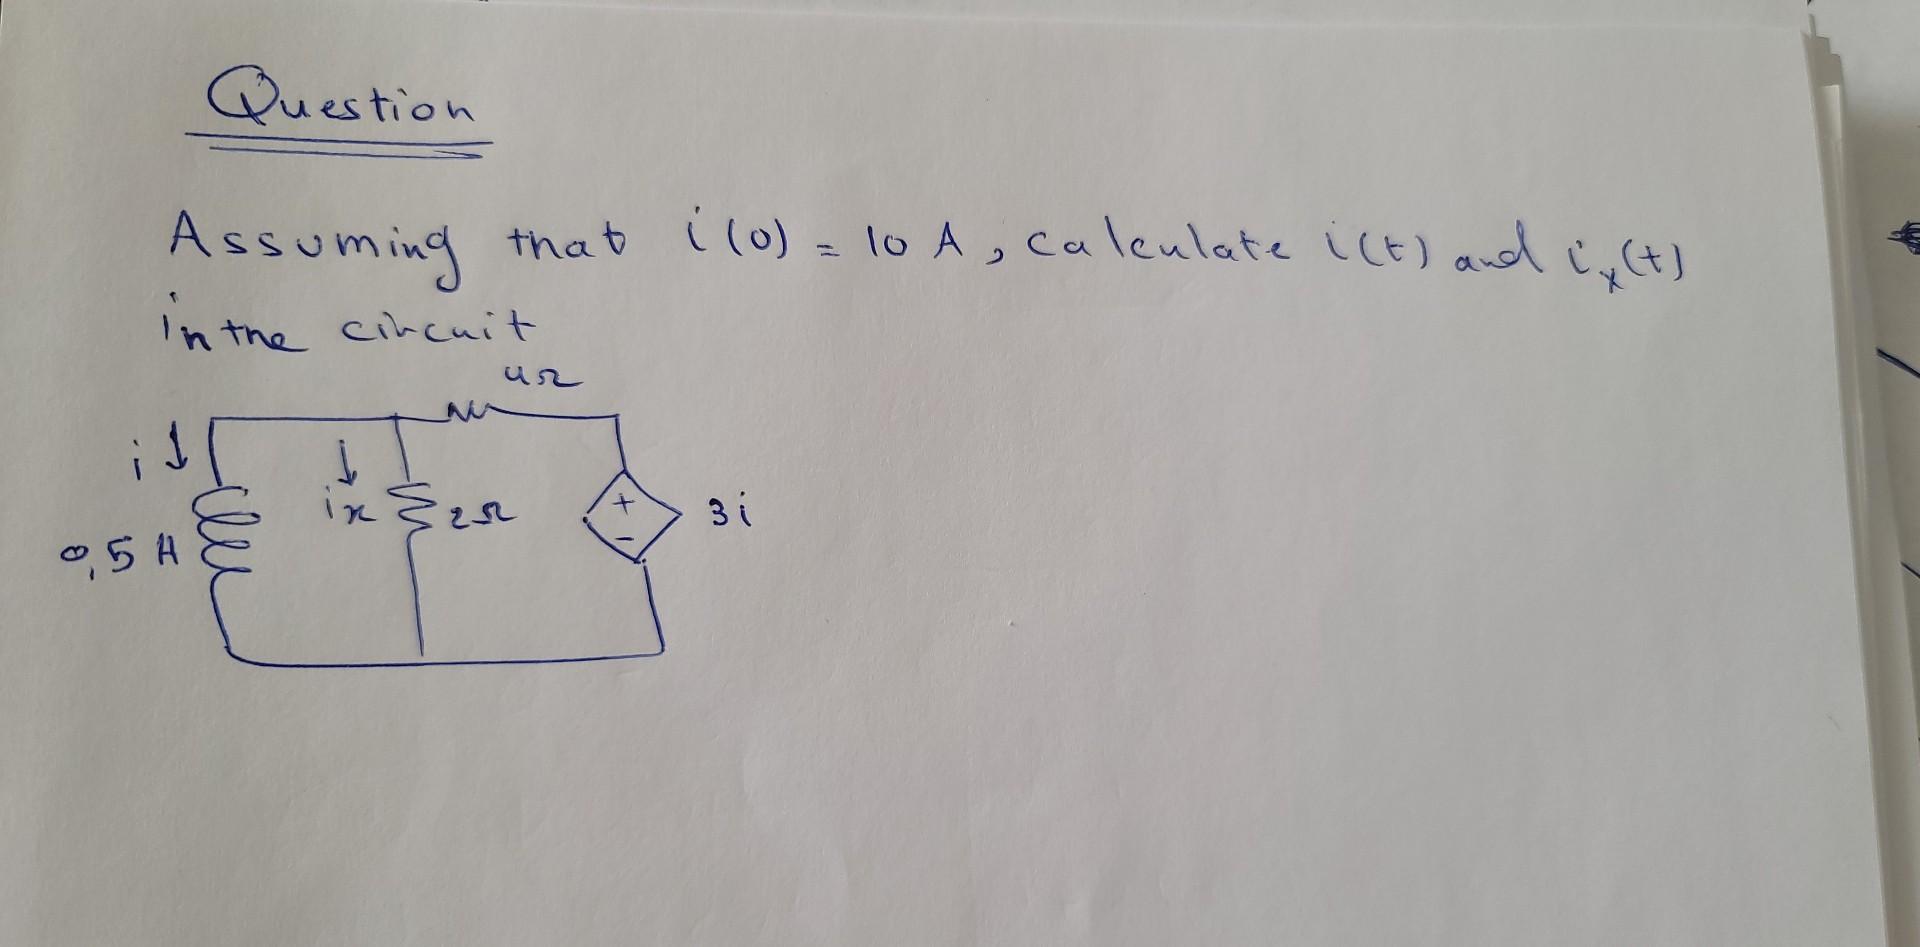 Question
Assuming that i(0) = 10 A, calculate i(t) and ix(t)
in the circuit
4Ω
i
ix
2Ω
+
-
3i
0,5 H